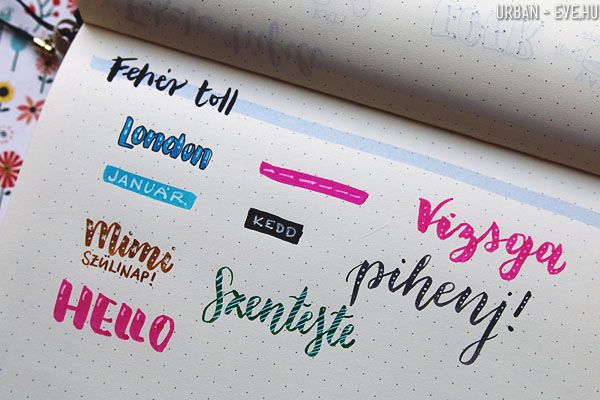 URBAN - EVE.HU
Fehér toll
London
JANUÁR.
KEDD
Vizsga
Mimi
SZÜLINAP!
pihenj!
HELLO
Szenteste